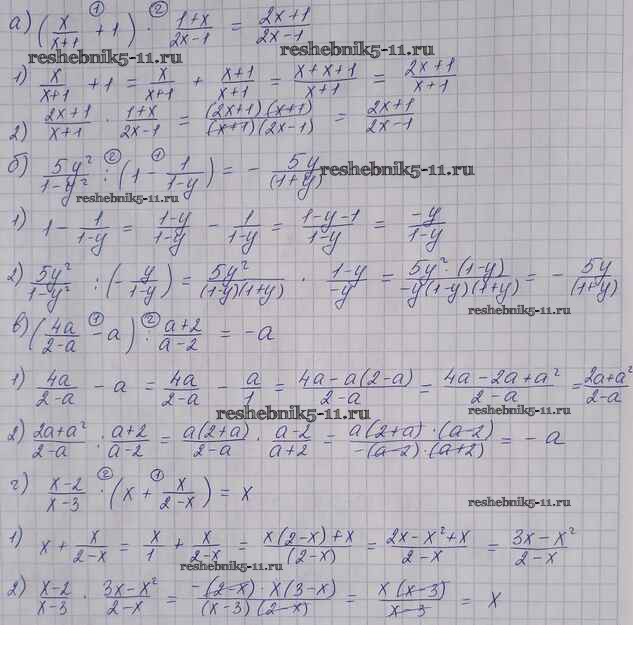 а) (x/(x+1) + 1) · (1+x)/(2x-1) = (2x+1)/(2x-1)
① ②
reshebnik5-11.ru reshebnik5-11.ru
1) x/(x+1) + 1 = x/(x+1) + (x+1)/(x+1) = (x+x+1)/(x+1) = (2x+1)/(x+1)
2) (2x+1)/(x+1) · (1+x)/(2x-1) = ((2x+1)(x+1))/((x+1)(2x-1)) = (2x+1)/(2x-1)
б) 5y²/(1-y²) : (1 - 1/(1-y)) = - 5y/(1+y) reshebnik5-11.ru
② ①
reshebnik5-11.ru
1) 1 - 1/(1-y) = (1-y)/(1-y) - 1/(1-y) = (1-y-1)/(1-y) = -y/(1-y)
2) 5y²/(1-y²) : (- y/(1-y)) = 5y²/((1-y)(1+y)) · (1-y)/(-y) = (5y² · (1-y))/(-y(1-y)(1+y)) = - 5y/(1+y)
reshebnik5-11.ru
в) (4a/(2-a) - a) : (a+2)/(a-2) = -a
① ②
1) 4a/(2-a) - a = 4a/(2-a) - a/1 = (4a-a(2-a))/(2-a) = (4a-2a+a²)/(2-a) = (2a+a²)/(2-a)
reshebnik5-11.ru reshebnik5-11.ru
2) (2a+a²)/(2-a) : (a+2)/(a-2) = a(2+a)/(2-a) · (a-2)/(a+2) = (a(2+a)·(a-2))/(-(a-2)·(a+2)) = -a
г) (x-2)/(x-3) · (x + x/(2-x)) = x
② ①
reshebnik5-11.ru
1) x + x/(2-x) = x/1 + x/(2-x) = (x(2-x)+x)/(2-x) = (2x-x²+x)/(2-x) = (3x-x²)/(2-x)
reshebnik5-11.ru
2) (x-2)/(x-3) · (3x-x²)/(2-x) = (-(2-x)·x(3-x))/((x-3)(2-x)) = x(x-3)/(x-3) = x